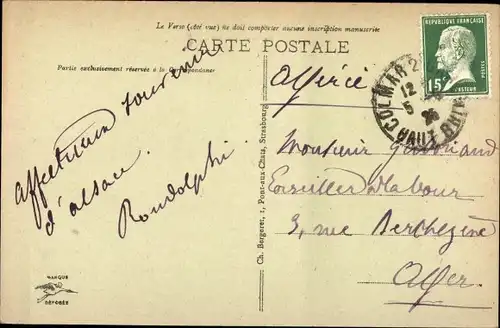 Le Verso (côté vue) ne doit comporter aucune inscription manuscrite
CARTE POSTALE
Partie exclusivement réservée à la Correspondance
Affectueux souvenir
d'alsace.
Roudolphi.
MARQUE
DÉPOSÉE
Ch. Bergeret, 1, Pont-aux-Chats, Strasbourg
RÉPUBLIQUE FRANÇAISE
POSTES
15c
PASTEUR
COLMAR 2
12
5 26
HAUT RHIN
Monsieur
Conseiller
3, rue Berthezène
Alger